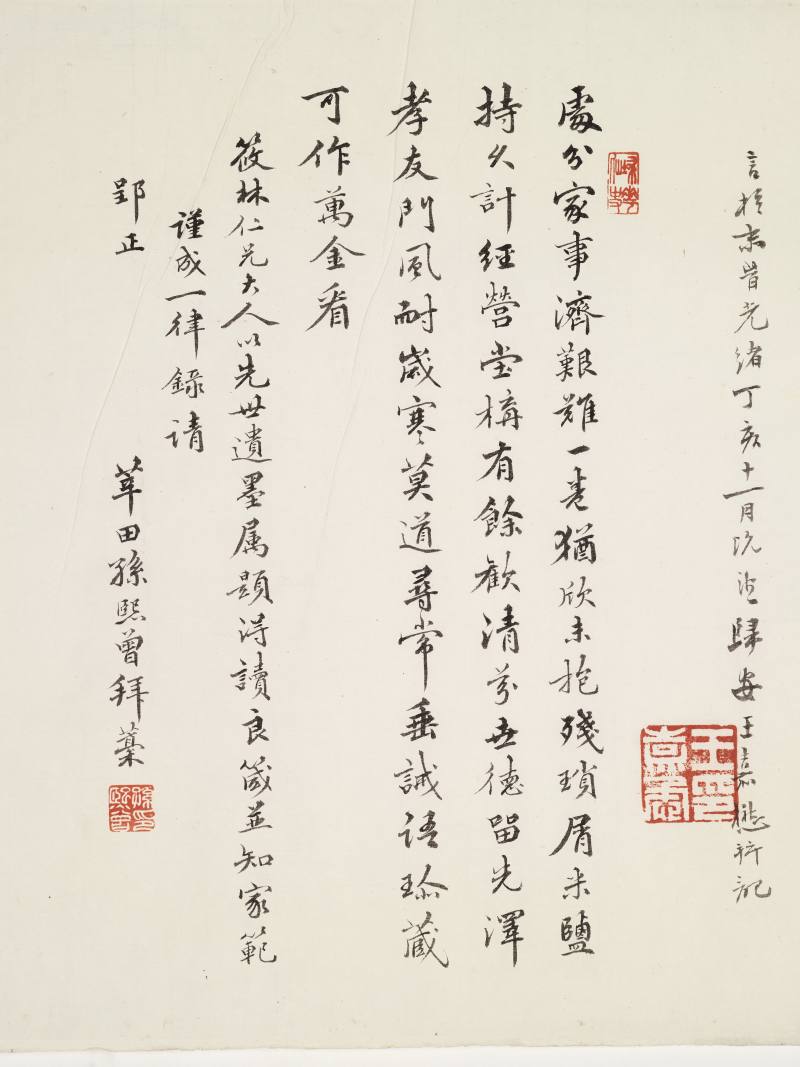 言於末昔光緒丁亥十一月既望歸安王嘉懋祈記
處分家事濟艱難一卷猶欣未抱殘瑣屑米鹽
持久計經營堂構有餘歡清芬世德留先澤
孝友門風耐歲寒莫道尋常垂誡語珍藏
可作萬金看
筱林仁兄大人以先世遺墨属題淂讀良箴並知家範
謹成一律錄請
郢正
莘田孫熙曾拜藁